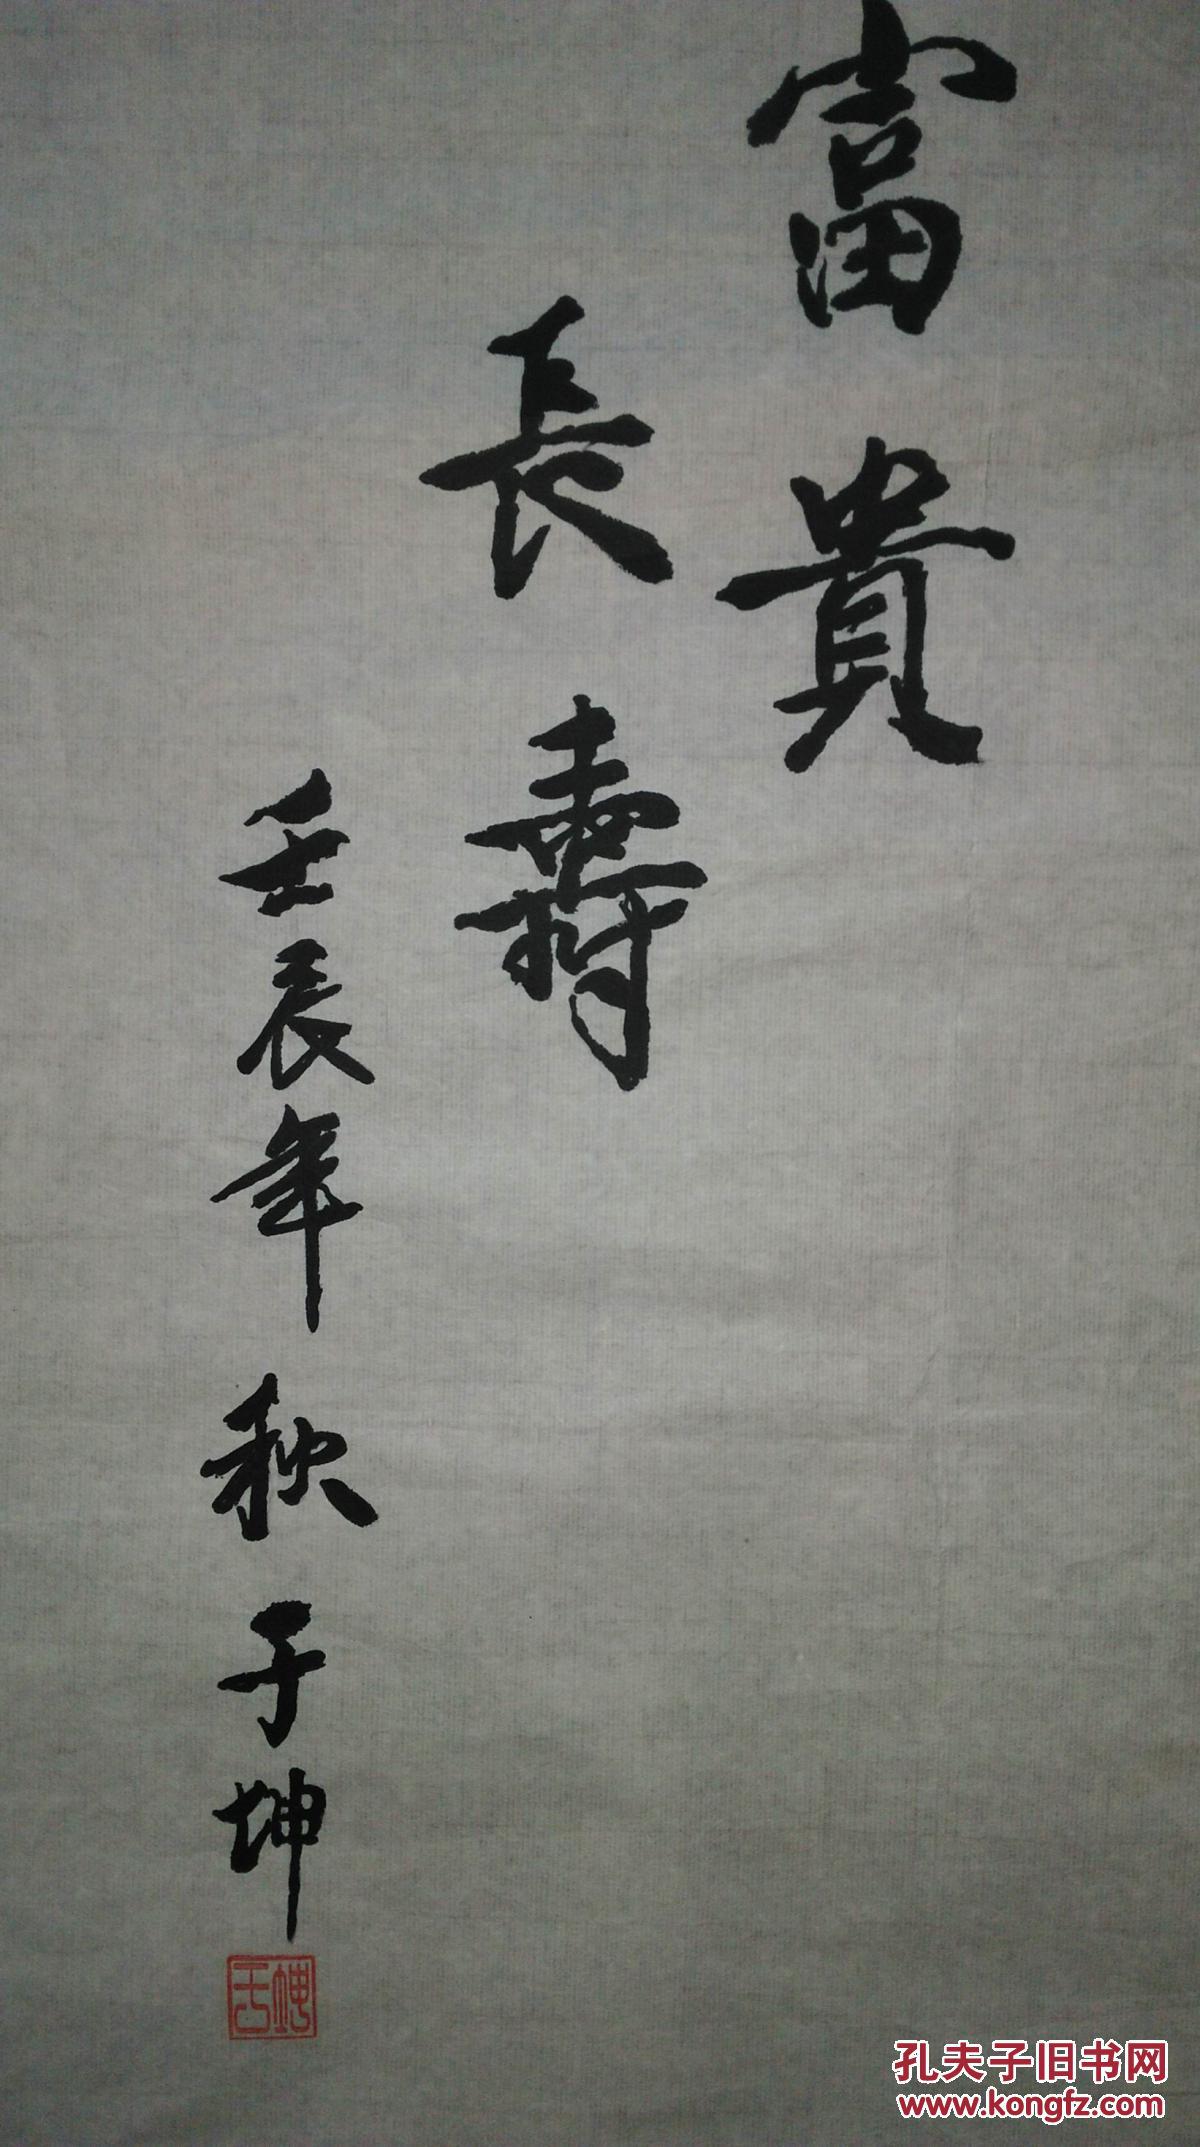 富貴
長壽
壬辰年秋于坤
孔夫子旧书网
www.kongfz.com